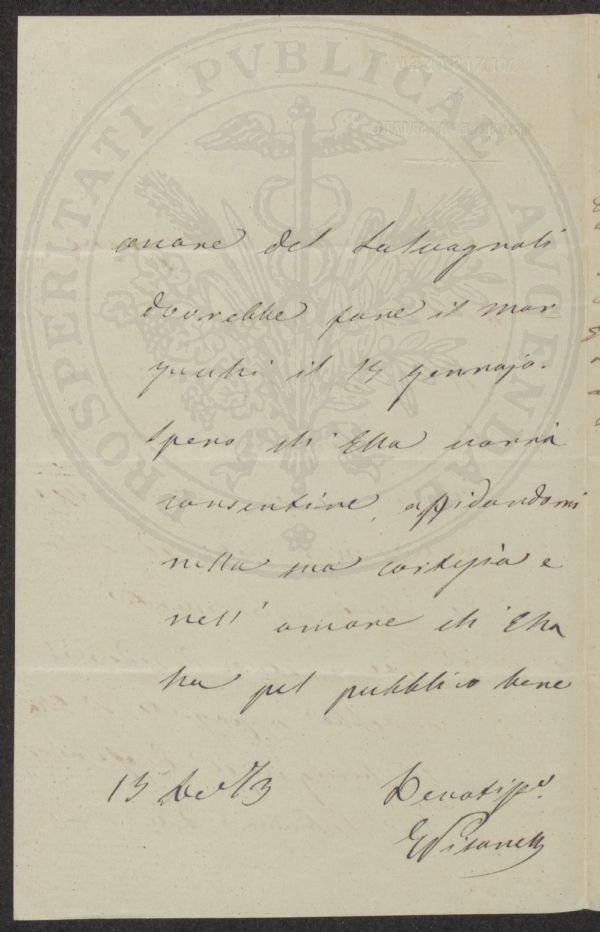 PROSPERITATI PVBLICAE AVGENDAE
onore del Salvagnoli
dovrebbe fare il Mar
zucchi il 14 gennajo.
Spero ch'Ella vorrà
consentire, affidandomi
nella sua cortesia e
nell'amore ch'Ella
ha pel pubblico bene
Devotiss.
GPisanelli